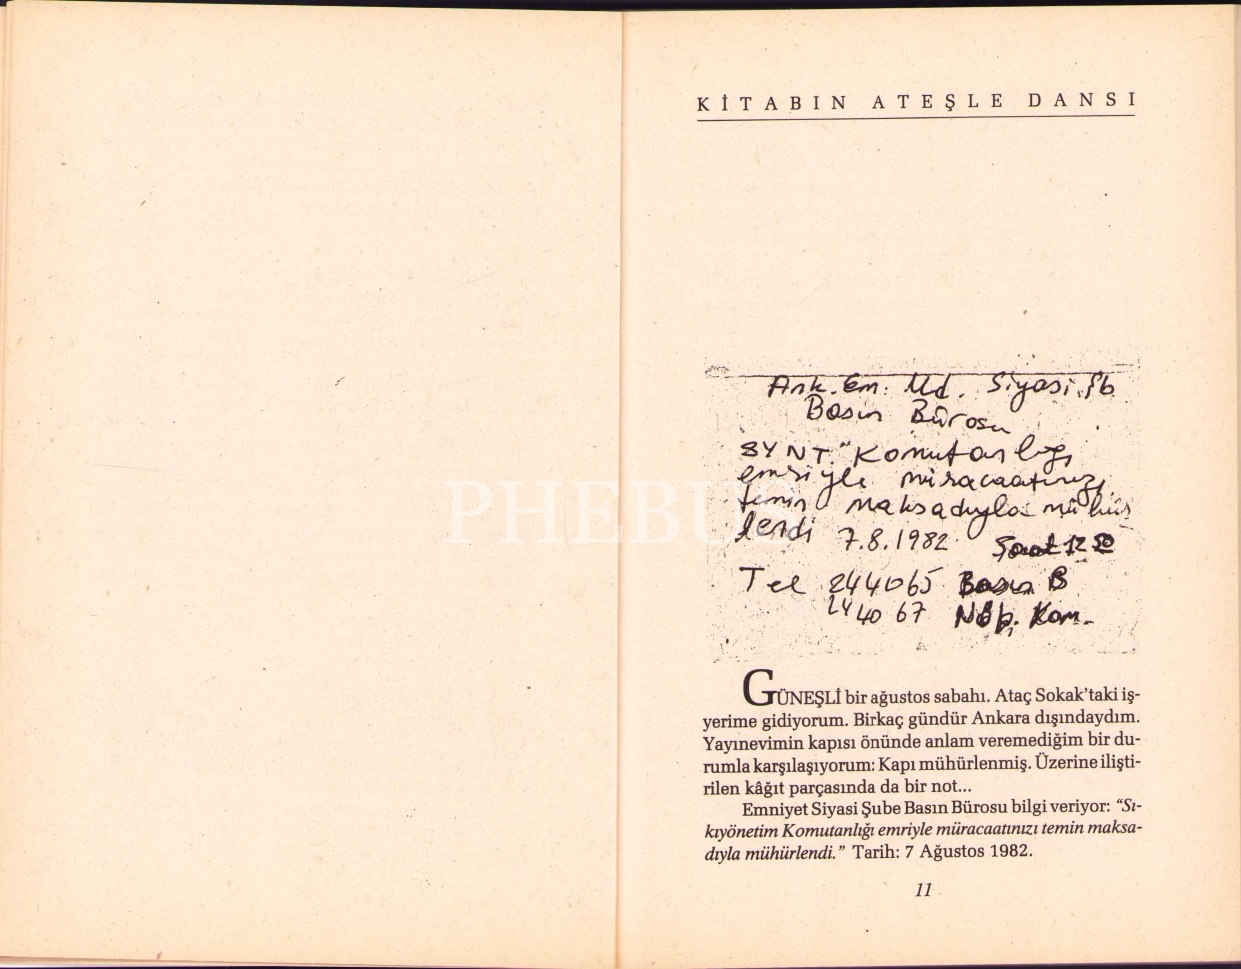 KİTABIN ATEŞLE DANSI
Ank. Em. Md. Siyasi. Şb
Basın Bürosu
SYNT. Komutanlığı
emriyle müracaatınızı
temin maksadıyla mühür
lendi 7.8.1982 Saat 12
Tel 244065 Basın B
244067 Nöb. Kom.
PHEBUS
GÜNEŞLİ bir ağustos sabahı. Ataç Sokak'taki iş-
yerime gidiyorum. Birkaç gündür Ankara dışındaydım.
Yayınevimin kapısı önünde anlam veremediğim bir du-
rumla karşılaşıyorum: Kapı mühürlenmiş. Üzerine ilişti-
rilen kâğıt parçasında da bir not...
Emniyet Siyasi Şube Basın Bürosu bilgi veriyor: “Sı-
kıyönetim Komutanlığı emriyle müracaatınızı temin maksa-
dıyla mühürlendi.” Tarih: 7 Ağustos 1982.
11